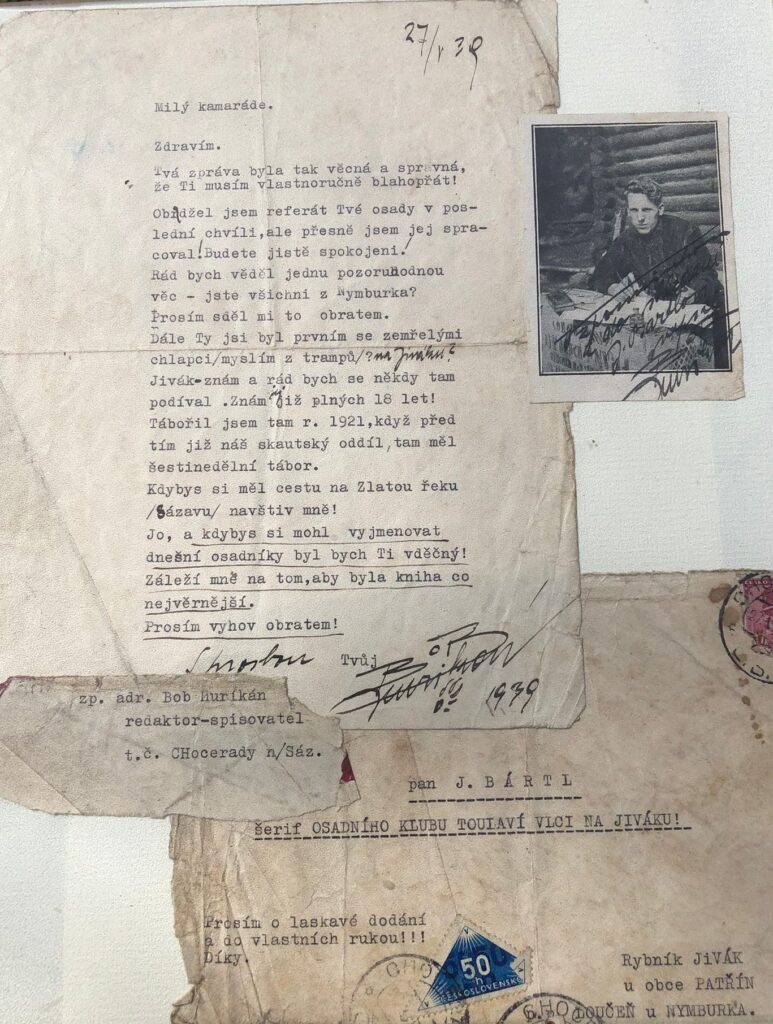 27/V 39
Milý kamaráde.
Zdravím.
Tvá zpráva byla tak věcná a správná,
že Ti musím vlastnoručně blahopřát!
Obdžel jsem referát Tvé osady v pos-
lední chvíli,ale přesně jsem jej spra-
coval!Budete jistě spokojeni!
Rád bych věděl jednu pozoruhodnou
věc - jste všichni z Nymburka?
Prosím sděl mi to obratem.
Dále Ty jsi byl prvním se zemřelými
chlapci/myslím z trampů/?na Jiváku?
Jivák-znám a rád bych se někdy tam
podíval .Znám jej již plných 18 let!
Tábořil jsem tam r. 1921,když před
tím již náš skautský oddíl,tam měl
šestinedělní tábor.
Kdybys si měl cestu na Zlatou řeku
/Sázavu/ navštiv mně!
Jo, a kdybys si mohl vyjmenovat
dnešní osadníky byl bych Ti vděčný!
Záleží mně na tom,aby byla kniha co
nejvěrnější.
Prosím vyhov obratem!
Tvůj
1939
zp. adr. Bob Huríkán
redaktor-spisovatel
t.č. CHocerady n/Sáz.
pan J. BÁRTL
šerif OSADNÍHO KLUBU TOUlAVÍ VLCI NA JIVÁKU!
Prosím o laskavé dodání
a do vlastních rukou!!!
Díky.
50
h
ČESKOSLOVENSKO
Rybník JiVÁK
u obce PATŘÍN
LOUČEŇ u NYMBURKA.